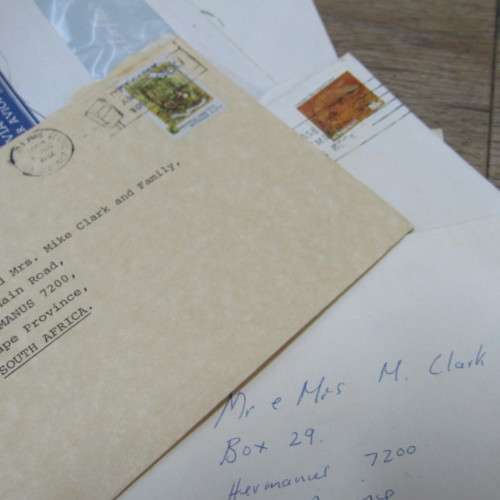 VIA
AR AVION
d Mrs. Mike Clark and Family,
ain Road,
MANUS 7200,
ape Province,
SOUTH AFRICA.
Mr e Mrs M. Clark
Box 29.
Hermanus 7200